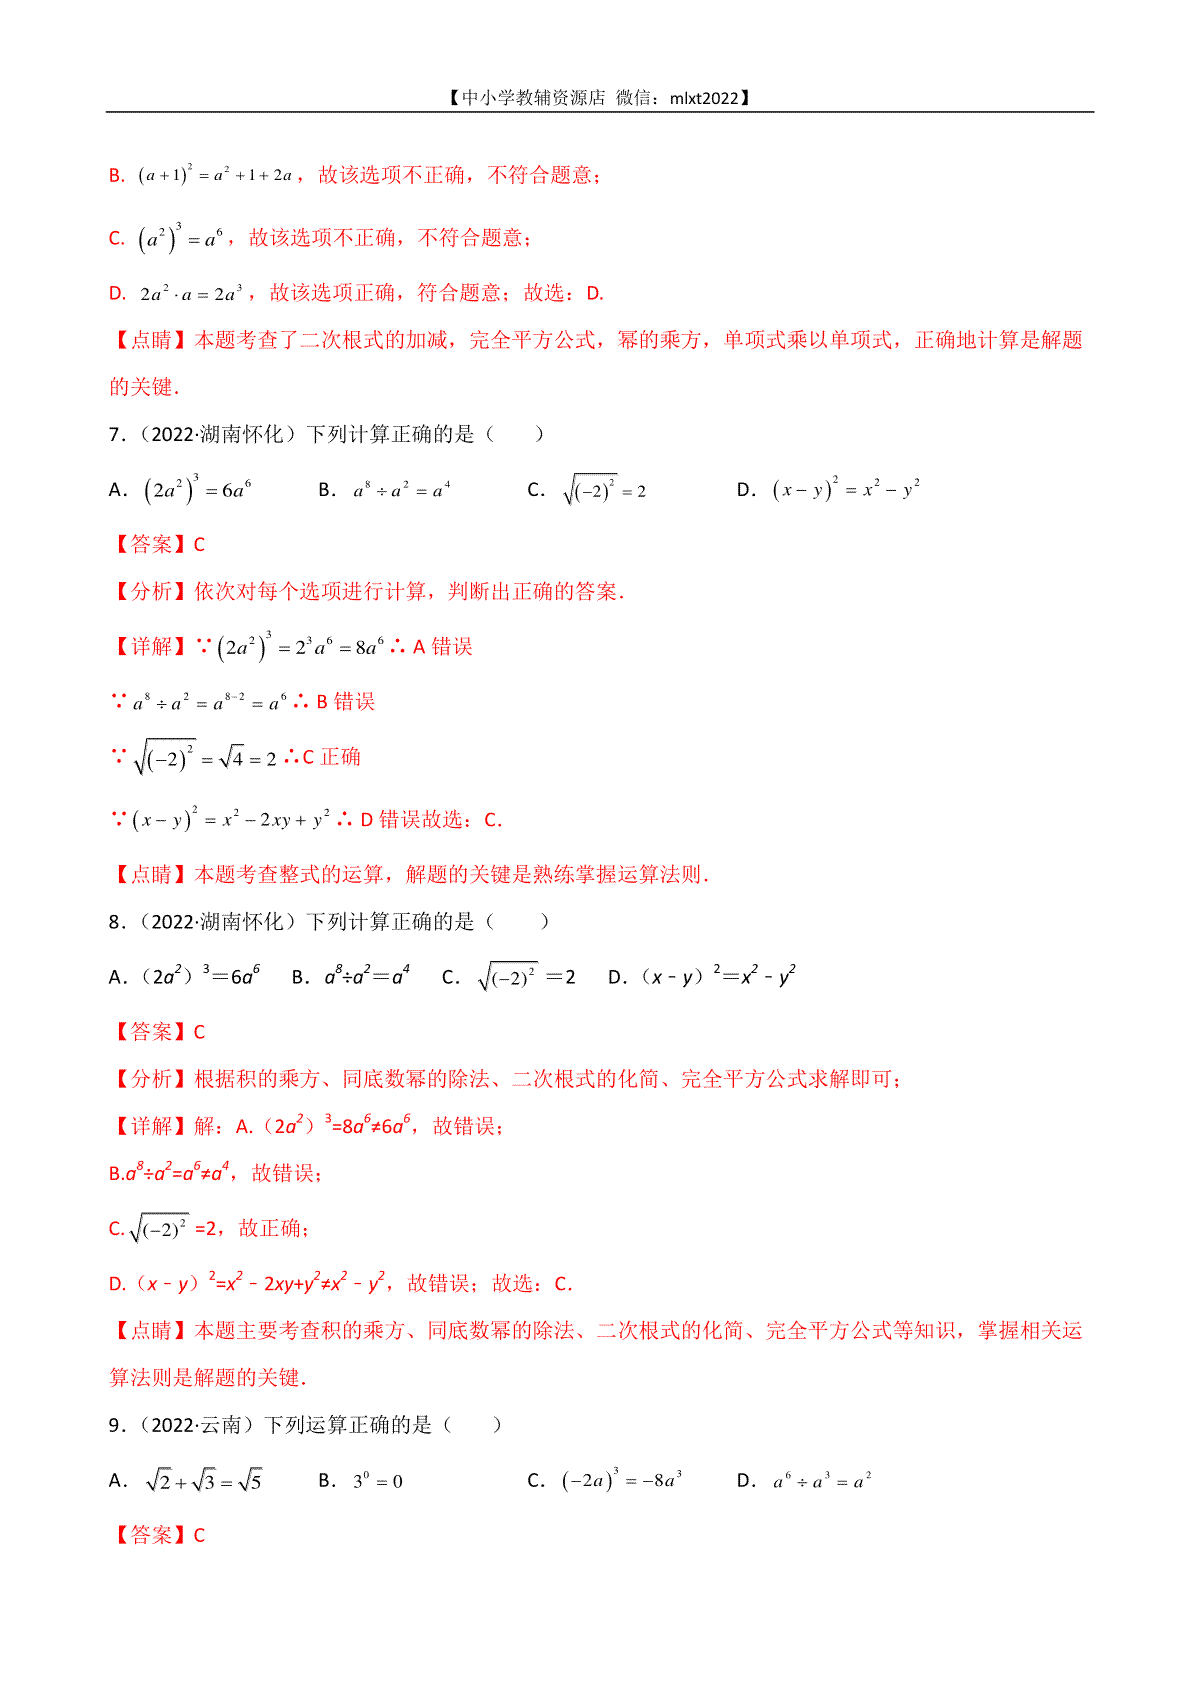 【中小学教辅资源店 微信：mlxt2022】
B. (a+1)² = a²+1+2a，故该选项不正确，不符合题意；
C. (a²)³ = a⁶，故该选项不正确，不符合题意；
D. 2a²·a = 2a³，故该选项正确，符合题意；故选：D.
【点睛】本题考查了二次根式的加减，完全平方公式，幂的乘方，单项式乘以单项式，正确地计算是解题
的关键．
7．（2022·湖南怀化）下列计算正确的是（　　）
A．(2a²)³ = 6a⁶　B．a⁸÷a² = a⁴　C．√(−2)² = 2　D．(x−y)² = x²−y²
【答案】C
【分析】依次对每个选项进行计算，判断出正确的答案．
【详解】∵(2a²)³ = 2³a⁶ = 8a⁶∴ A 错误
∵a⁸÷a² = a⁸⁻² = a⁶∴ B 错误
∵√(−2)² = √4 = 2∴C 正确
∵(x−y)² = x²−2xy+y²∴ D 错误故选：C．
【点睛】本题考查整式的运算，解题的关键是熟练掌握运算法则．
8．（2022·湖南怀化）下列计算正确的是（　　）
A．（2a²）³＝6a⁶　B．a⁸÷a²＝a⁴　C．√(−2)² ＝2　D．（x﹣y）²＝x²﹣y²
【答案】C
【分析】根据积的乘方、同底数幂的除法、二次根式的化简、完全平方公式求解即可；
【详解】解：A.（2a²）³=8a⁶≠6a⁶，故错误；
B.a⁸÷a²=a⁶≠a⁴，故错误；
C.√(−2)² =2，故正确；
D.（x﹣y）²=x²﹣2xy+y²≠x²﹣y²，故错误；故选：C．
【点睛】本题主要考查积的乘方、同底数幂的除法、二次根式的化简、完全平方公式等知识，掌握相关运
算法则是解题的关键．
9．（2022·云南）下列运算正确的是（　　）
A．√2+√3=√5　B．3⁰ = 0　C．(−2a)³ = −8a³　D．a⁶÷a³ = a²
【答案】C